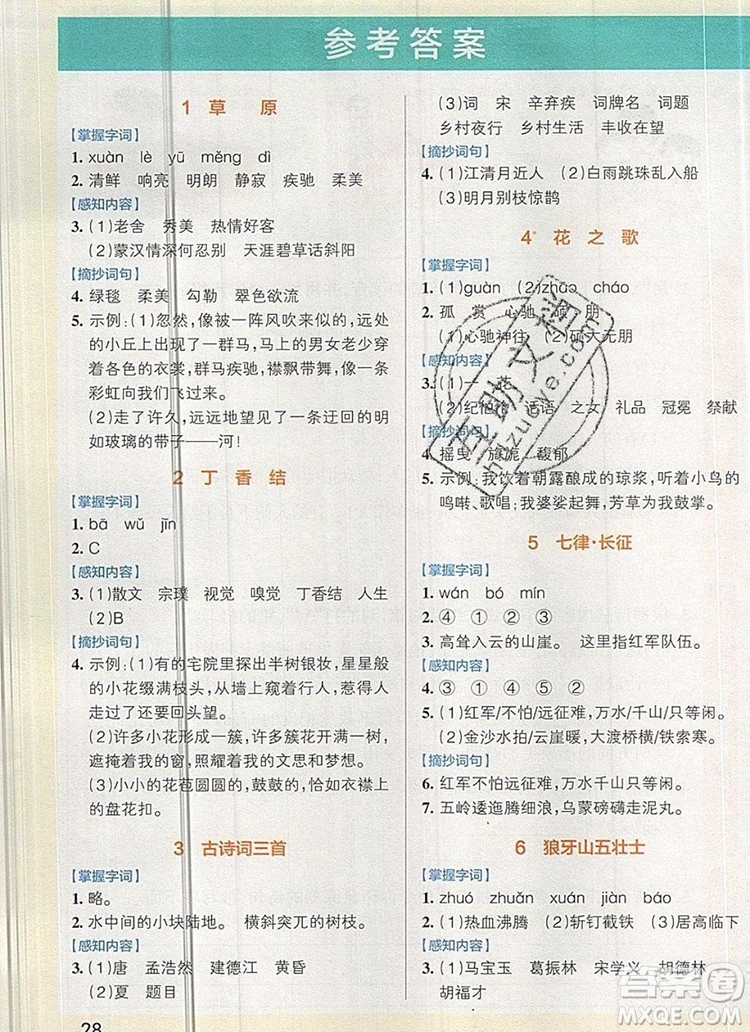 参考答案
1 草原
[掌握字词]
1. xuàn lè yū měng dì
2. 清鲜 响亮 明朗 静寂 疾驰 柔美
[感知内容]
3. (1)老舍 秀美 热情好客
(2)蒙汉情深何忍别 天涯碧草话斜阳
[摘抄词句]
4. 绿毯 柔美 勾勒 翠色欲流
5. 示例:(1)忽然,像被一阵风吹来似的,远处
的小丘上出现了一群马,马上的男女老少穿
着各色的衣裳,群马疾驰,襟飘带舞,像一条
彩虹向我们飞过来。
(2)走了许久,远远地望见了一条迂回的明
如玻璃的带子——河!
2 丁香结
[掌握字词]
1. bā wǔ jīn
2. C
[感知内容]
3. (1)散文 宗璞 视觉 嗅觉 丁香结 人生
(2)B
[摘抄词句]
4. 示例:(1)有的宅院里探出半树银妆,星星般
的小花缀满枝头,从墙上窥着行人,惹得人
走过了还要回头望。
(2)许多小花形成一簇,许多簇花开满一树,
遮掩着我的窗,照耀着我的文思和梦想。
(3)小小的花苞圆圆的,鼓鼓的,恰如衣襟上
的盘花扣。
3 古诗词三首
[掌握字词]
1. 略。
2. 水中间的小块陆地。 横斜突兀的树枝。
[感知内容]
3. (1)唐 孟浩然 建德江 黄昏
(2)夏 题目
28
(3)词 宋 辛弃疾 词牌名 词题
乡村夜行 乡村生活 丰收在望
[摘抄词句]
4. (1)江清月近人 (2)白雨跳珠乱入船
(3)明月别枝惊鹊
4* 花之歌
[掌握字词]
1. (1)guàn (2)zhāo cháo
2. 孤 赏 心驰 硕 朋
(1)心驰神往 (2)硕大无朋
[感知内容]
3. (1)一
(2)纪伯伦 话语 之女 礼品 冠冕 祭献
[摘抄词句]
4. 摇曳 旖旎 馥郁
5. 示例:我饮着朝露酿成的琼浆,听着小鸟的
鸣啭、歌唱;我婆娑起舞,芳草为我鼓掌。
5 七律·长征
[掌握字词]
1. wán bó mín
2. ④ ① ② ③
3. 高耸入云的山崖。 这里指红军队伍。
[感知内容]
4. ③ ① ④ ②
5. (1)红军/不怕/远征难,万水/千山/只等闲。
(2)金沙水拍/云崖暖,大渡桥横/铁索寒。
[摘抄词句]
6. 红军不怕远征难,万水千山只等闲。
7. 五岭逶迤腾细浪,乌蒙磅礴走泥丸。
6 狼牙山五壮士
[掌握字词]
1. zhuó zhuǎn xuán jiàn báo
2. (1)热血沸腾 (2)斩钉截铁 (3)居高临下
[感知内容]
3. (1)马宝玉 葛振林 宋学义 胡德林
胡福才
互助文档
huzuwenda.com
答案圈
MXQE.COM